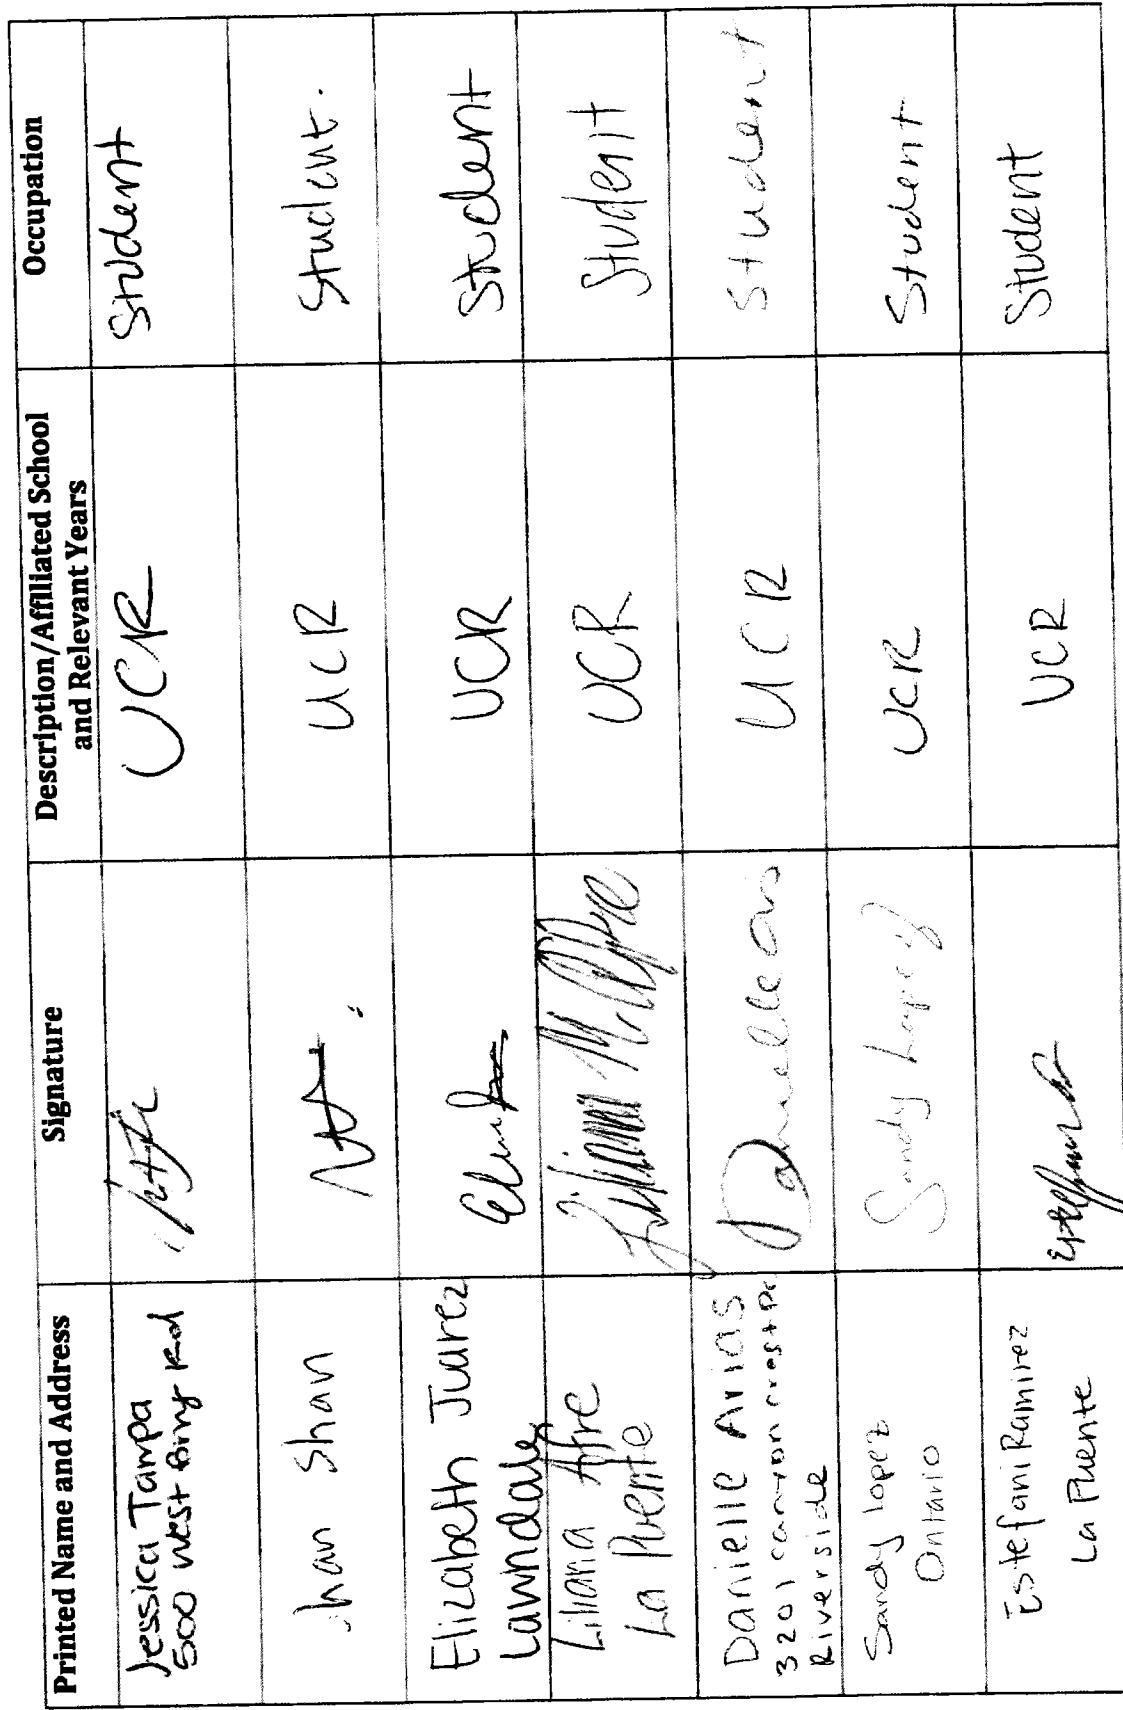 Printed Name and Address
Signature
Description/Affiliated School
and Relevant Years
Occupation
Jessica Tampa
500 West Rd
UCR
Student
Shan
UCR
Student.
Elizabeth Juarez
Lawndale
UCR
Student
Liliana
La Puente
UCR
Student
Danielle Arias
3201 canyon crest Dr
Riverside
UCR
Student
Sandy Lopez
Ontario
Sandy Lopez
UCR
Student
Estefani Ramirez
La Puente
UCR
Student